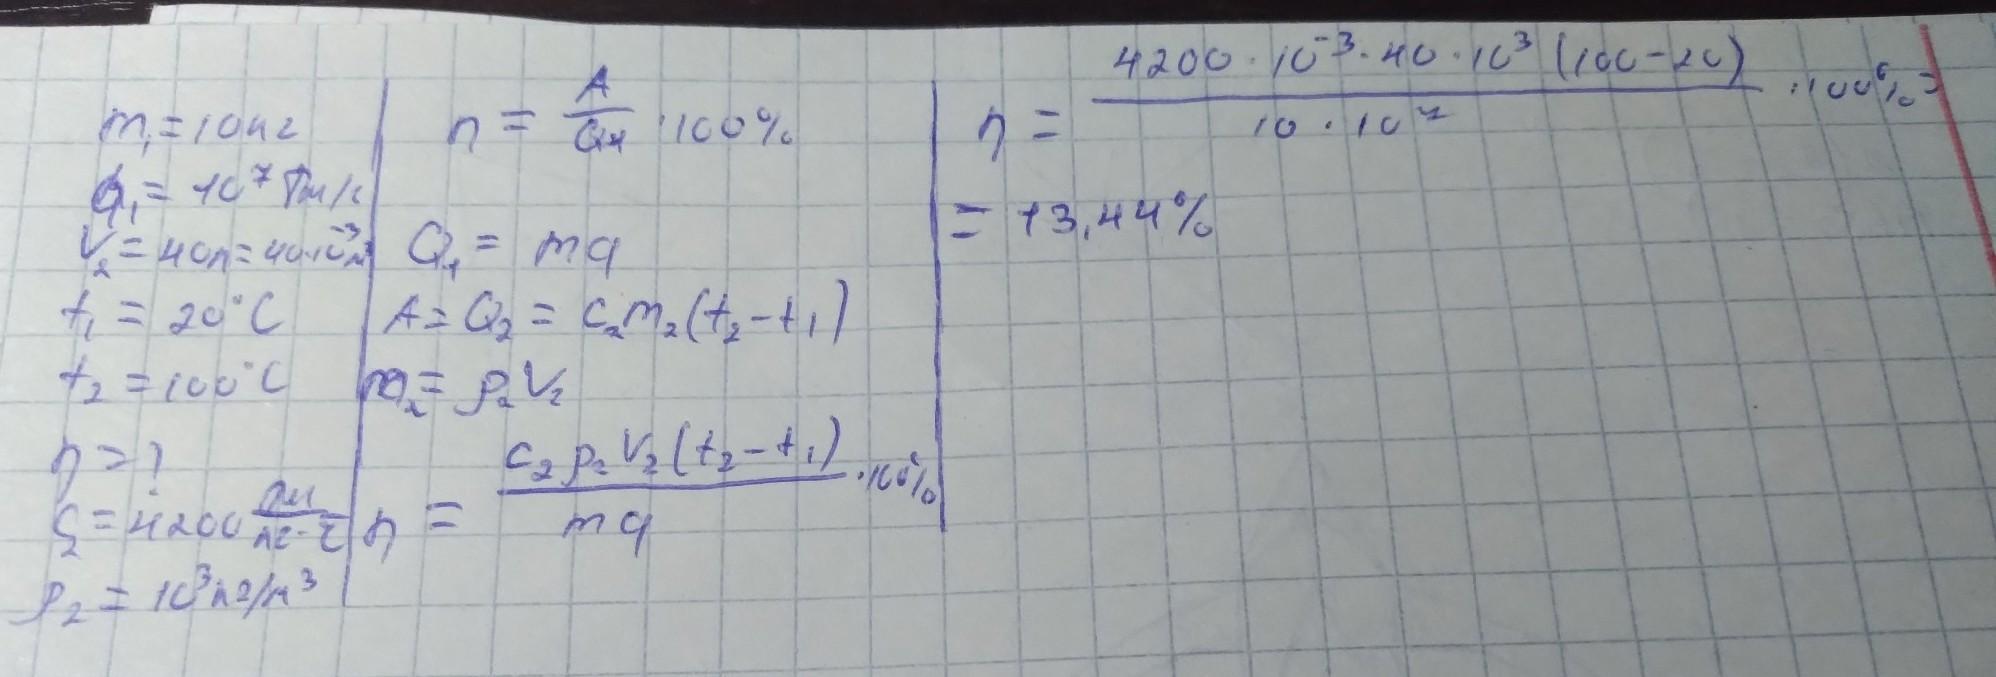 m₁ = 10 кг
q₁ = 10⁷ Дж/к
V₂ = 40л = 40·10⁻³м³
t₁ = 20°C
t₂ = 100°C
η = ?
c₂ = 4200 Дж/кг·°C
ρ₂ = 10³ кг/м³
η = A/Q₁ · 100%
Q₁ = mq
A = Q₂ = c₂m₂(t₂ - t₁)
m₂ = ρ₂V₂
η = c₂ρ₂V₂(t₂ - t₁)/mq · 100%
η = 4200 · 10⁻³ · 40 · 10³ (100 - 20)/10 · 10⁷ · 100% =
= 13,44%